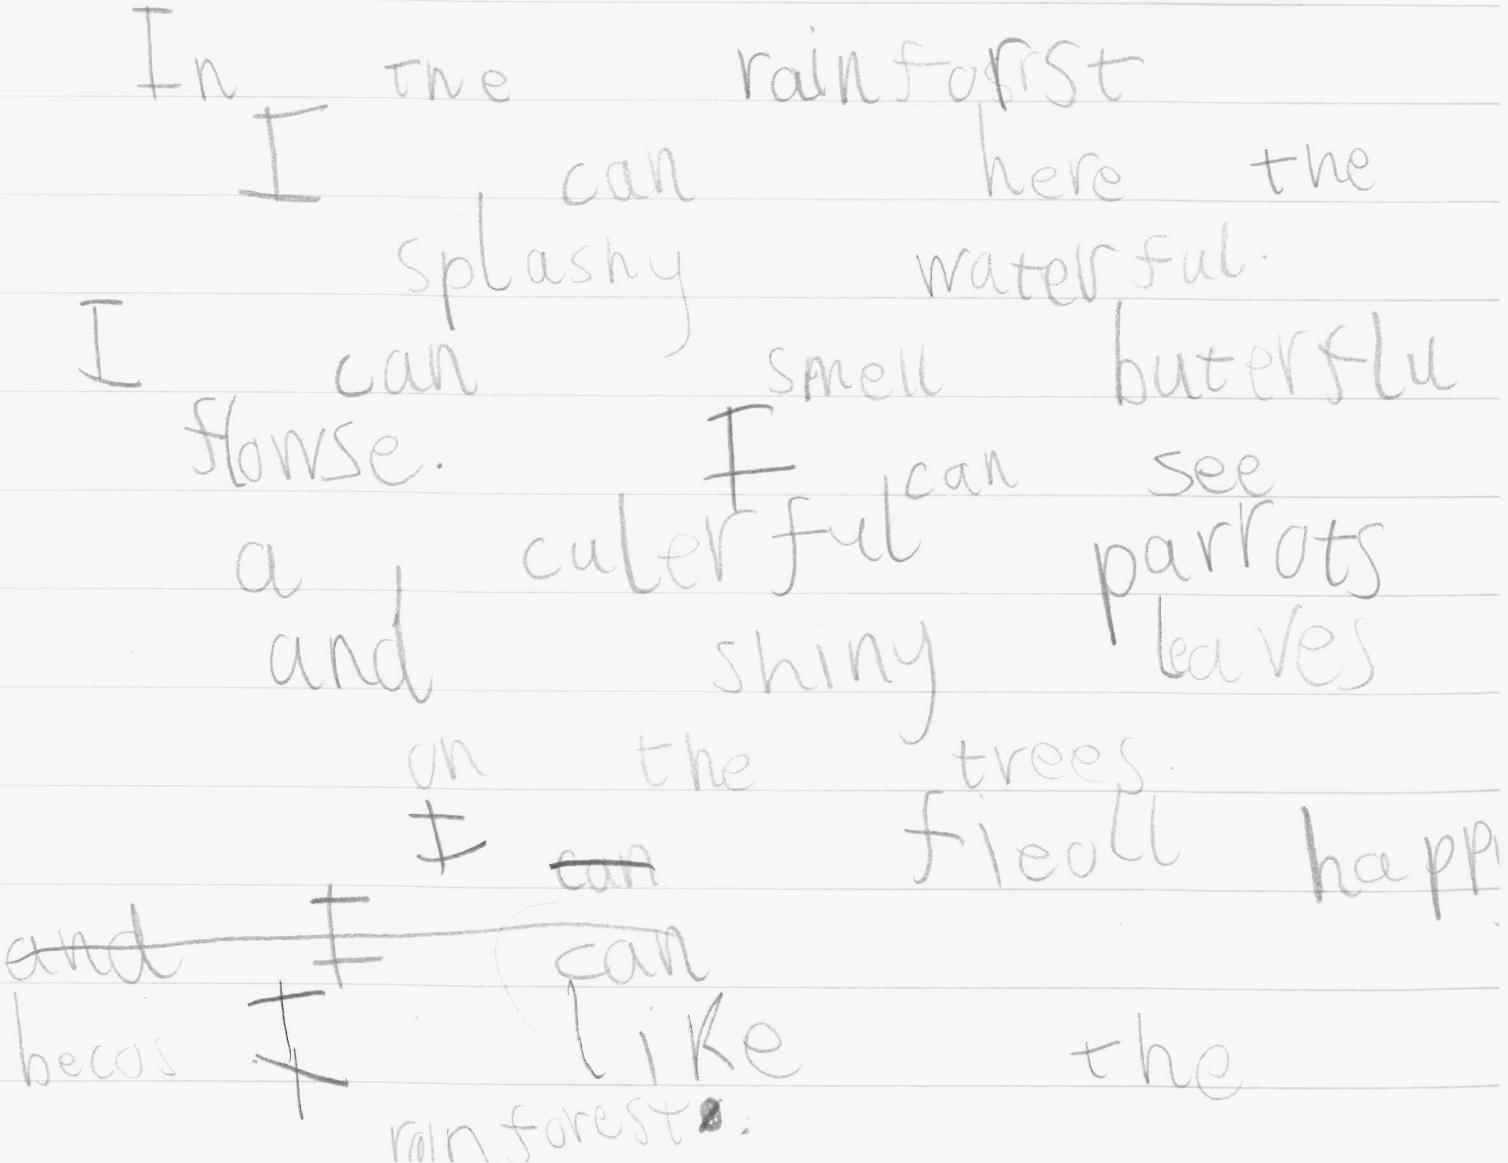 In the rainforrst
I can here the
splashy waterful.
I can smell buterflu
flowse. I can see
a culerful parrots
and shiny leaves
on the trees.
I can fieoll happ
and I can
becos I like the
rainforest.